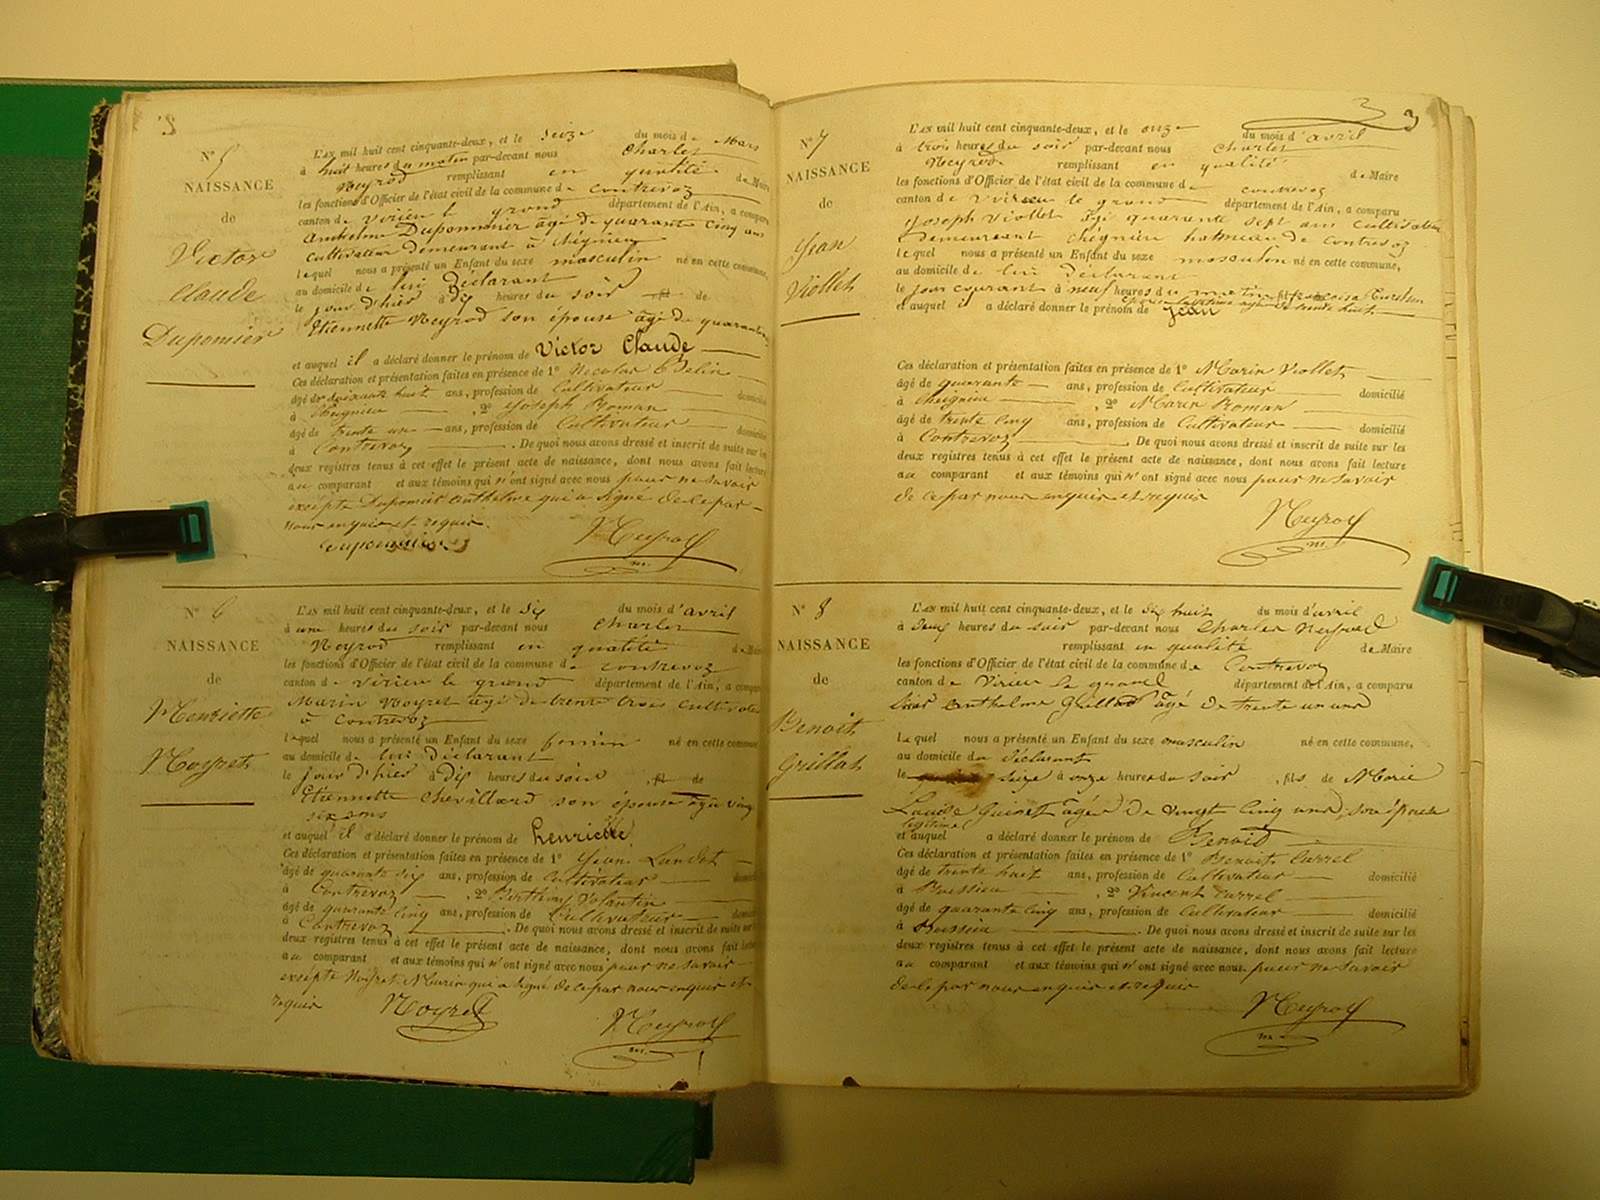 3
N° 5
NAISSANCE
de
Victor
Claude
Duponnier
L'AN mil huit cent cinquante-deux, et le seize du mois de Mars
à huit heures du matin par-devant nous Charles
Neyrod remplissant en qualité de Maire
les fonctions d'Officier de l'état civil de la commune de contrevoz
canton de virieu le grand département de l'Ain, a comparu
Anthelme Duponnier âgé de quarante cinq ans
cultivateur demeurant à chégnieu
lequel nous a présenté un Enfant du sexe masculin né en cette commune,
au domicile de lui déclarant
le jour d'hier à dix heures du soir fil de
Etiennette Neyrod son épouse âgé de quarante
et auquel il a déclaré donner le prénom de Victor Claude
Ces déclaration et présentation faites en présence de 1° Nicolas Belin
âgé de soixante huit ans, profession de Cultivateur domicilié
à Cheignieu , 2° Joseph Roman
âgé de trente un ans, profession de Cultivateur domicilié
à Contrevoz . De quoi nous avons dressé et inscrit de suite sur les
deux registres tenus à cet effet le présent acte de naissance, dont nous avons fait lecture
au comparant et aux témoins qui n'ont signé avec nous pour ne savoir
excepté Duponnier anthelme qui a signé de ce par
nous enquis et requis.
Duponnier Neyrod
m.
N° 6
NAISSANCE
de
Henriette
Noyret
L'AN mil huit cent cinquante-deux, et le six du mois d'avril
à une heures du soir par-devant nous Charles
Neyrod remplissant en qualité de Maire
les fonctions d'Officier de l'état civil de la commune de contrevoz
canton de virieu le grand département de l'Ain, a comparu
Marin Noyret âgé de trente trois cultivateur
à contrevoz
lequel nous a présenté un Enfant du sexe féminin né en cette commune
au domicile de lui déclarant
le jour d'hier à dix heures du soir fil de
Etiennette Chevillard son épouse âgée vingt
six ans
et auquel il a déclaré donner le prénom de henriette
Ces déclaration et présentation faites en présence de 1° Jean Landot
âgé de quarante six ans, profession de Cultivateur domicilié
à Contrevoz , 2° Berthémy Volantin
âgé de quarante cinq ans, profession de Cultivateur domicilié
à Contrevoz . De quoi nous avons dressé et inscrit de suite sur
deux registres tenus à cet effet le présent acte de naissance, dont nous avons fait lecture
au comparant et aux témoins qui n'ont signé avec nous pour ne savoir
excepté Noyret Marin qui a signé de ce par nous enquis et
requis Noyret Neyrod
m.
3
N° 7
NAISSANCE
de
Jean
Viollet
L'AN mil huit cent cinquante-deux, et le onze du mois d'avril
à trois heures du soir par-devant nous Charles
Neyrod remplissant en qualité de Maire
les fonctions d'Officier de l'état civil de la commune de contrevoz
canton de virieu le grand département de l'Ain, a comparu
Joseph Viollet âgé quarante sept ans cultivateur
demeurant chégnieu hameau de contrevoz
lequel nous a présenté un Enfant du sexe masculin né en cette commune,
au domicile de lui déclarant
le jour courant à neuf heures du matin fils
et auquel a déclaré donner le prénom de Jean
Ces déclaration et présentation faites en présence de 1° Marin Viollet
âgé de quarante ans, profession de Cultivateur domicilié
à cheignieu , 2° Marin Roman
âgé de trente cinq ans, profession de Cultivateur domicilié
à Contrevoz . De quoi nous avons dressé et inscrit de suite sur les
deux registres tenus à cet effet le présent acte de naissance, dont nous avons fait lecture
au comparant et aux témoins qui n'ont signé avec nous pour ne savoir
de ce par nous enquis et requis
Neyrod
m.
N° 8
NAISSANCE
de
Benoit
Grillat
L'AN mil huit cent cinquante-deux, et le dix huit du mois d'avril
à deux heures du soir par-devant nous Charles Neyrod
remplissant en qualité de Maire
les fonctions d'Officier de l'état civil de la commune de Contrevoz
canton de Virieu le grand département de l'Ain, a comparu
Sieur anthelme Grillat âgé de trente un ans
Lequel nous a présenté un Enfant du sexe masculin né en cette commune,
au domicile du déclarant
le seize à onze heures du soir , fils de Marie
Louise Guinet âgée de vingt cinq ans, son épouse
légitime
et auquel a déclaré donner le prénom de Benoit
Ces déclaration et présentation faites en présence de 1° Benoit Carrel
âgé de trente huit ans, profession de Cultivateur domicilié
à Boissieu , 2° Vincent Carrel
âgé de quarante cinq ans, profession de Cultivateur domicilié
à Boissieu . De quoi nous avons dressé et inscrit de suite sur les
deux registres tenus à cet effet le présent acte de naissance, dont nous avons fait lecture
au comparant et aux témoins qui n'ont signé avec nous pour ne savoir
de ce par nous enquis et requis
Neyrod
m